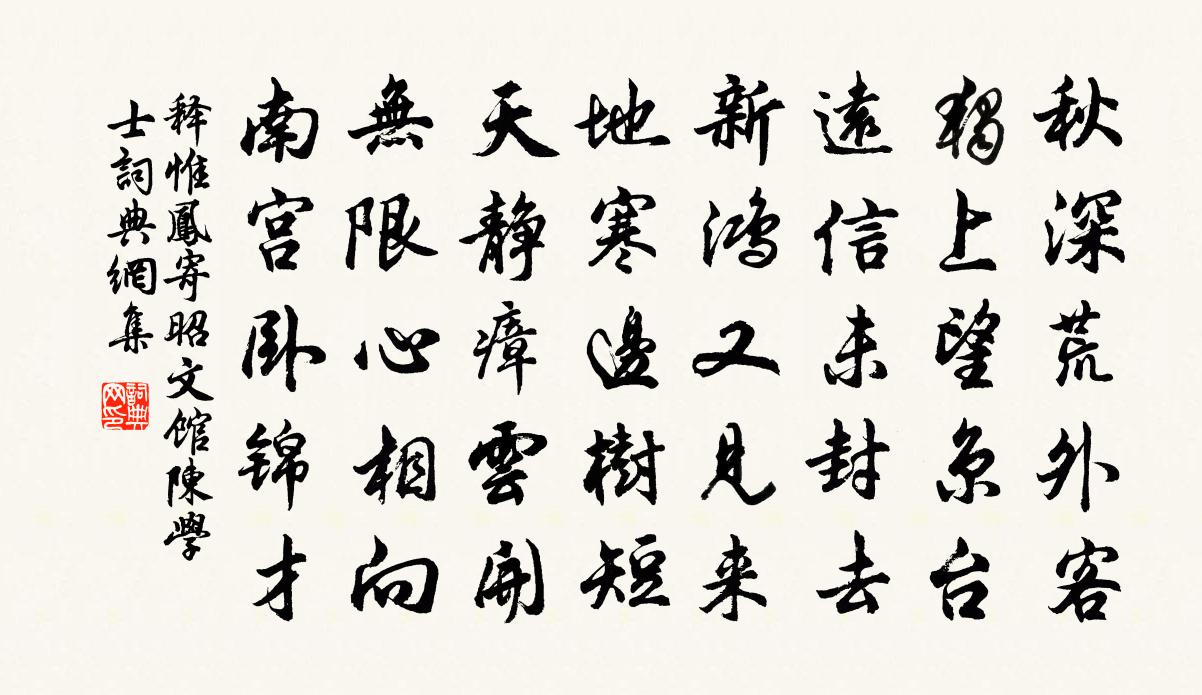 秋深荒外客
獨上望京台
遠信未封去
新鴻又見来
地寒邊樹短
天靜瘴雲開
無限心相向
南宫卧锦才
释惟鳳寄昭文馆陳學
士詞典網集
詞典网印